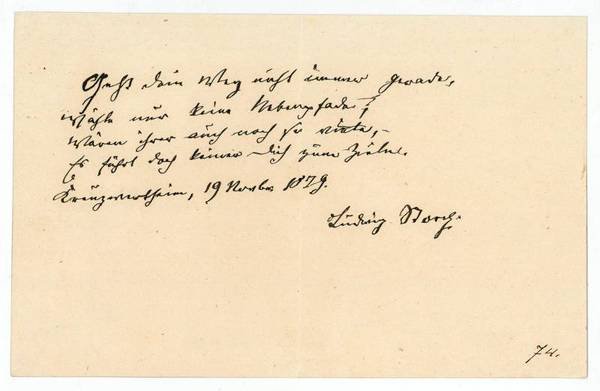 Geht dein Weg nicht immer gerade,
Wähle nur keine Nebenpfade;
Wären ihrer auch noch so viele,
Es führt doch keiner dich zum Ziele.
Kreuzwertheim, 19 Novbr 1879.
Ludwig Storch.
74.